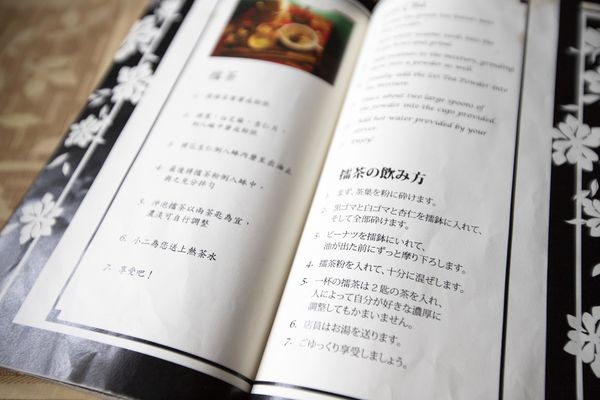 擂茶
1. 將茶葉磨成粉狀
2. 白芝麻、杏仁片，
倒入缽中磨成粉狀
3. 將花生仁倒入缽內磨至出油止
4. 最後將擂茶粉倒入缽中，
與之充分拌勻
5. 沖泡擂茶以兩茶匙為宜，
濃淡可自行調整
6. 小二為您送上熱茶水
7. 享受吧！
the green tea leaves into
sesame seeds into the
to the mixture, grinding
powder as well.
add the Lei Tea Powder into
about two large spoons of
powder into the cups provided.
Add hot water provided by your
server.
Enjoy!
擂茶の飲み方
1- まず、茶葉を粉に砕けます。
2- 黒ゴマと白ゴマと杏仁を擂鉢に入れて、
そして全部砕けます。
3- ピーナツを擂鉢にいれて、
油が出た前にずっと摩り下ろします。
4- 擂茶粉を入れて、十分に混ぜします。
5- 一杯の擂茶は２匙の茶を入れ、
人によって自分が好きな濃厚に
調整してもかまいません。
6. 店員はお湯を送ります。
7- ごゆっくり享受しましょう。